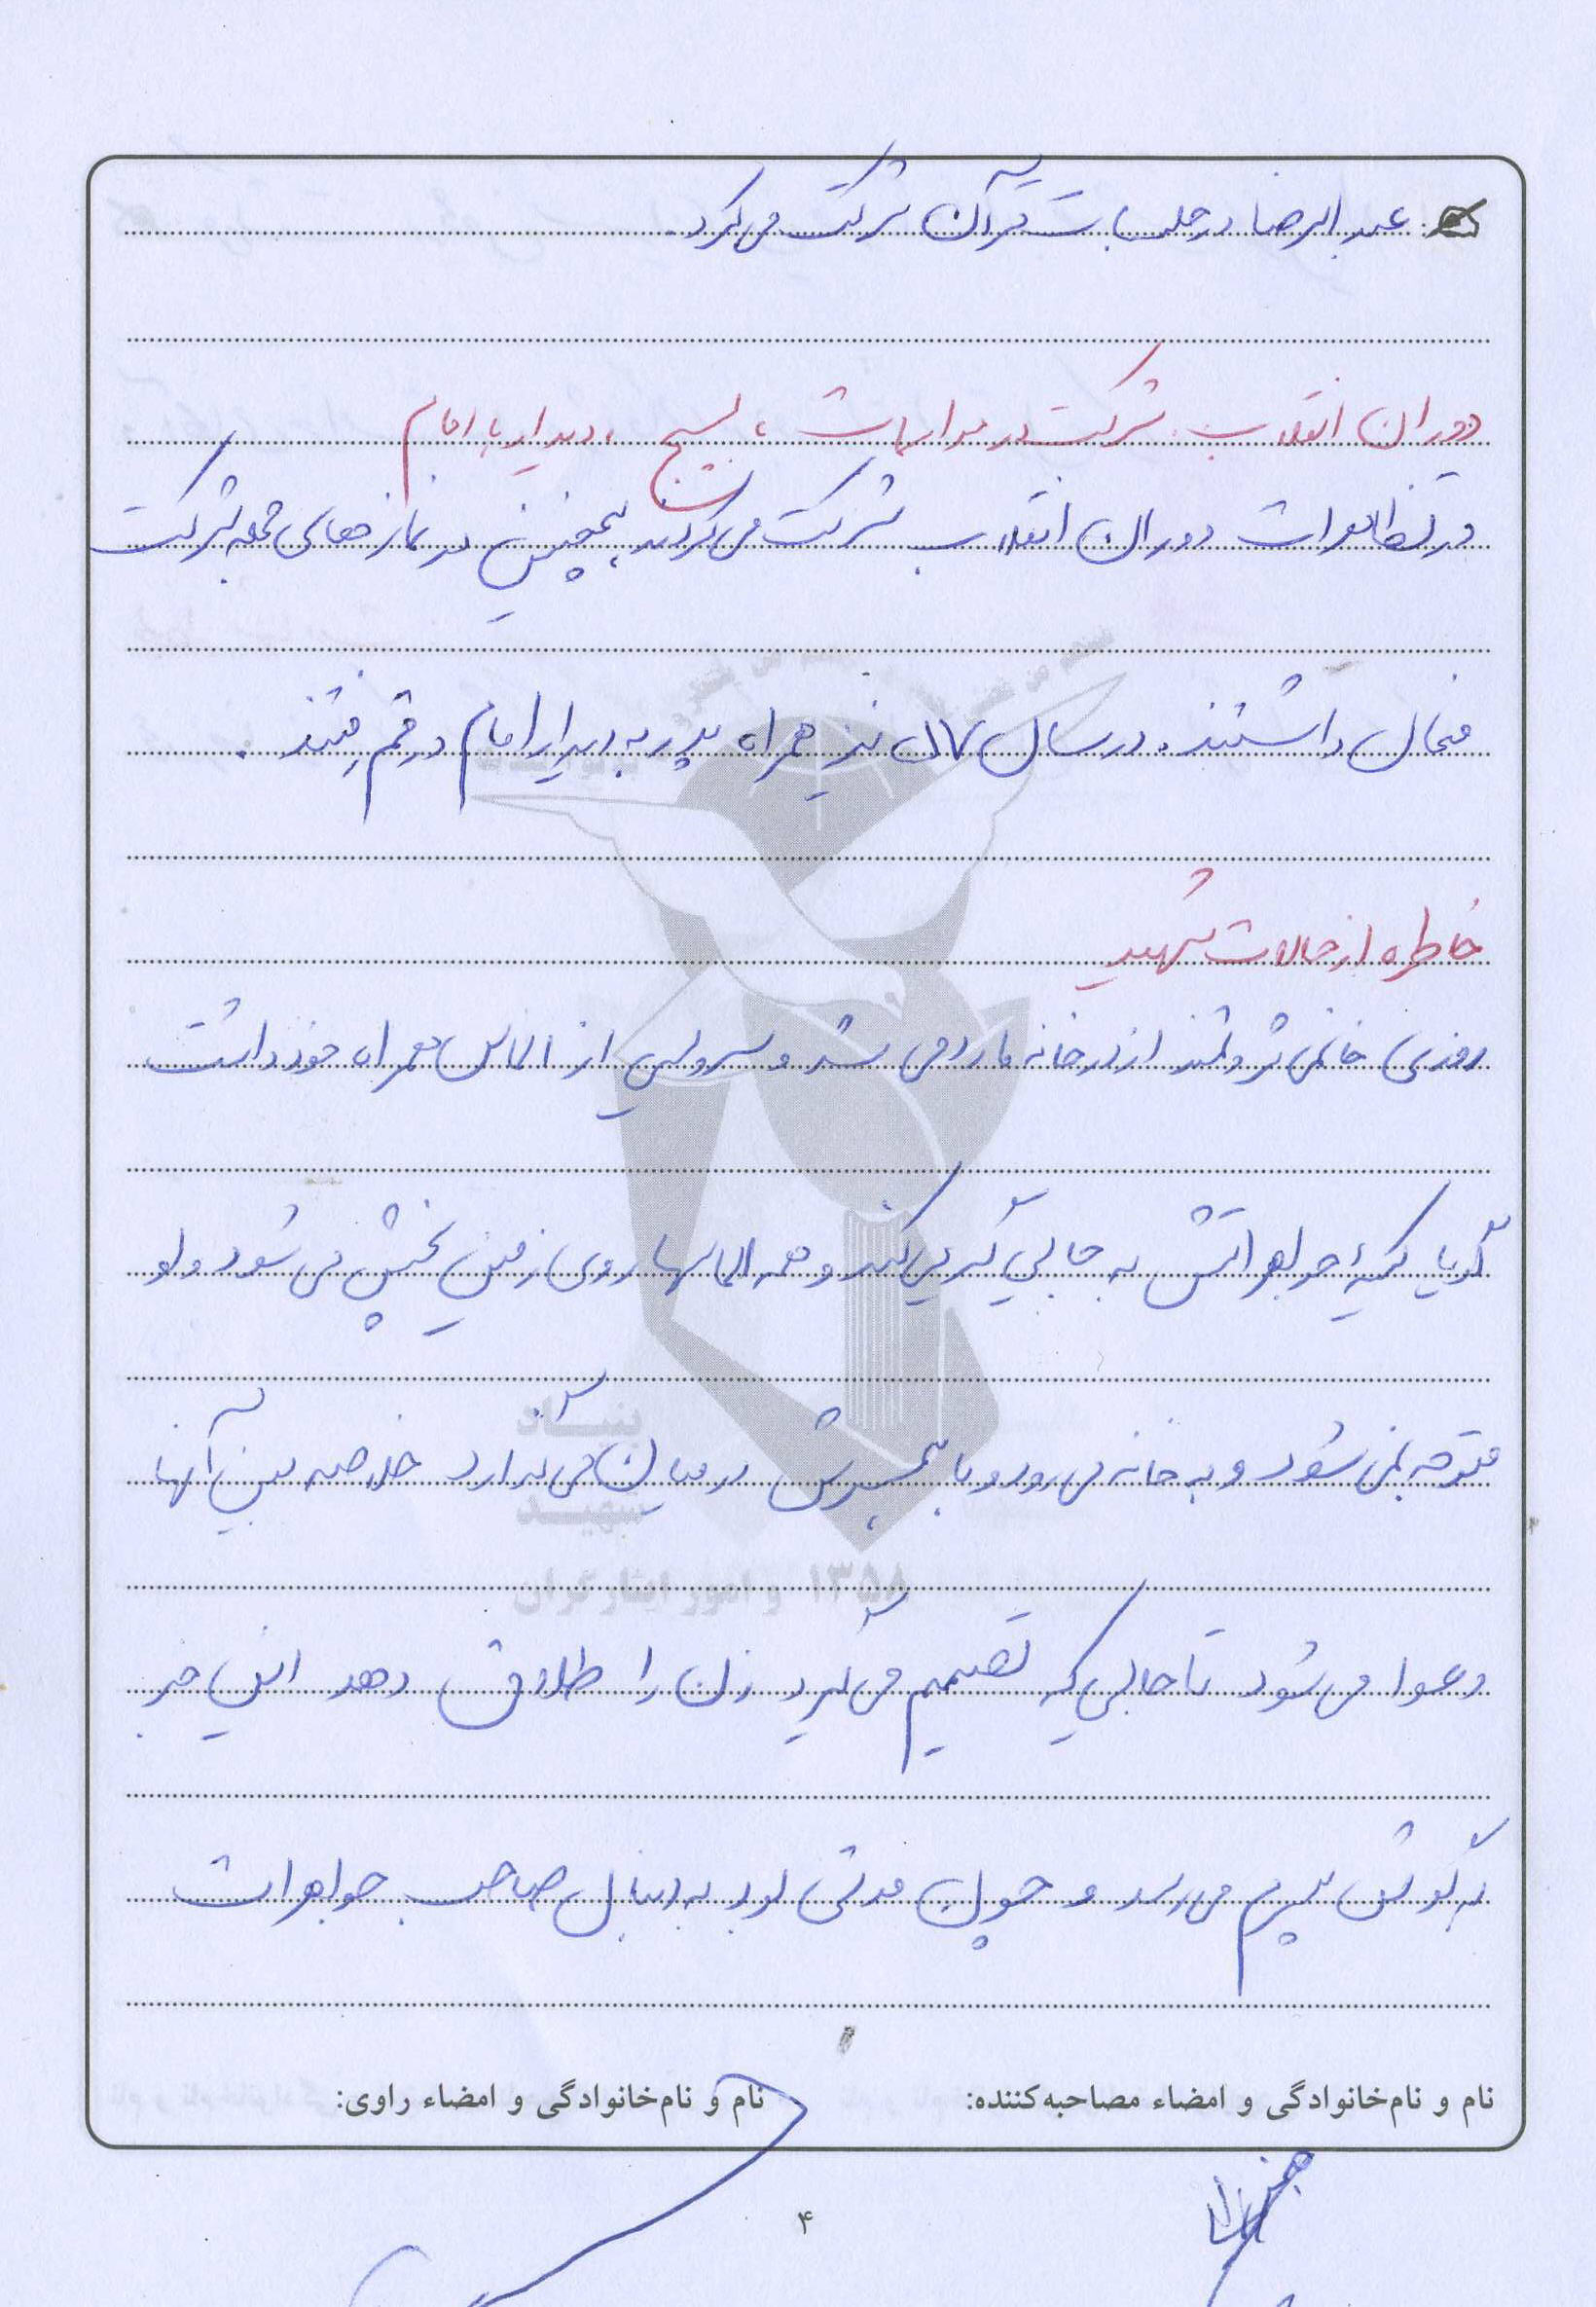 عبدالرضا در جلسات قرآن شرکت می‌کرد.
دوران انقلاب، شرکت در مراسمات، بسیج، دیدار با امام
در تظاهرات دوران انقلاب شرکت می‌کردند، همچنین در نمازهای جمعه شرکت
فعال داشتند. در سال نیز همراه پدر به دیدار امام در قم رفتند.
خاطره از حالات شهید
روزی خانمی ثروتمند از در خانه ما رد می شد و سرویسی از الماس همراه خود داشت
گویا کیسهٔ جواهراتش به جایی گیر می‌کند و همه الماسها روی زمین پخش می شود و او
متوجه نمی شود و به خانه می رود و با همسرش در میان می گذارد خلاصه بین آنها
دعوا می شود تا جایی که تصمیم می گیرد زن را طلاق دهد این خبر
به گوش پسرم می رسد و چون مدتی بود به دنبال صاحب جواهرات
نام و نام‌خانوادگی و امضاء مصاحبه‌کننده: نام و نام‌خانوادگی و امضاء راوی:
۴
بنیاد
شهید
و امور ایثارگران ۱۳۵۸